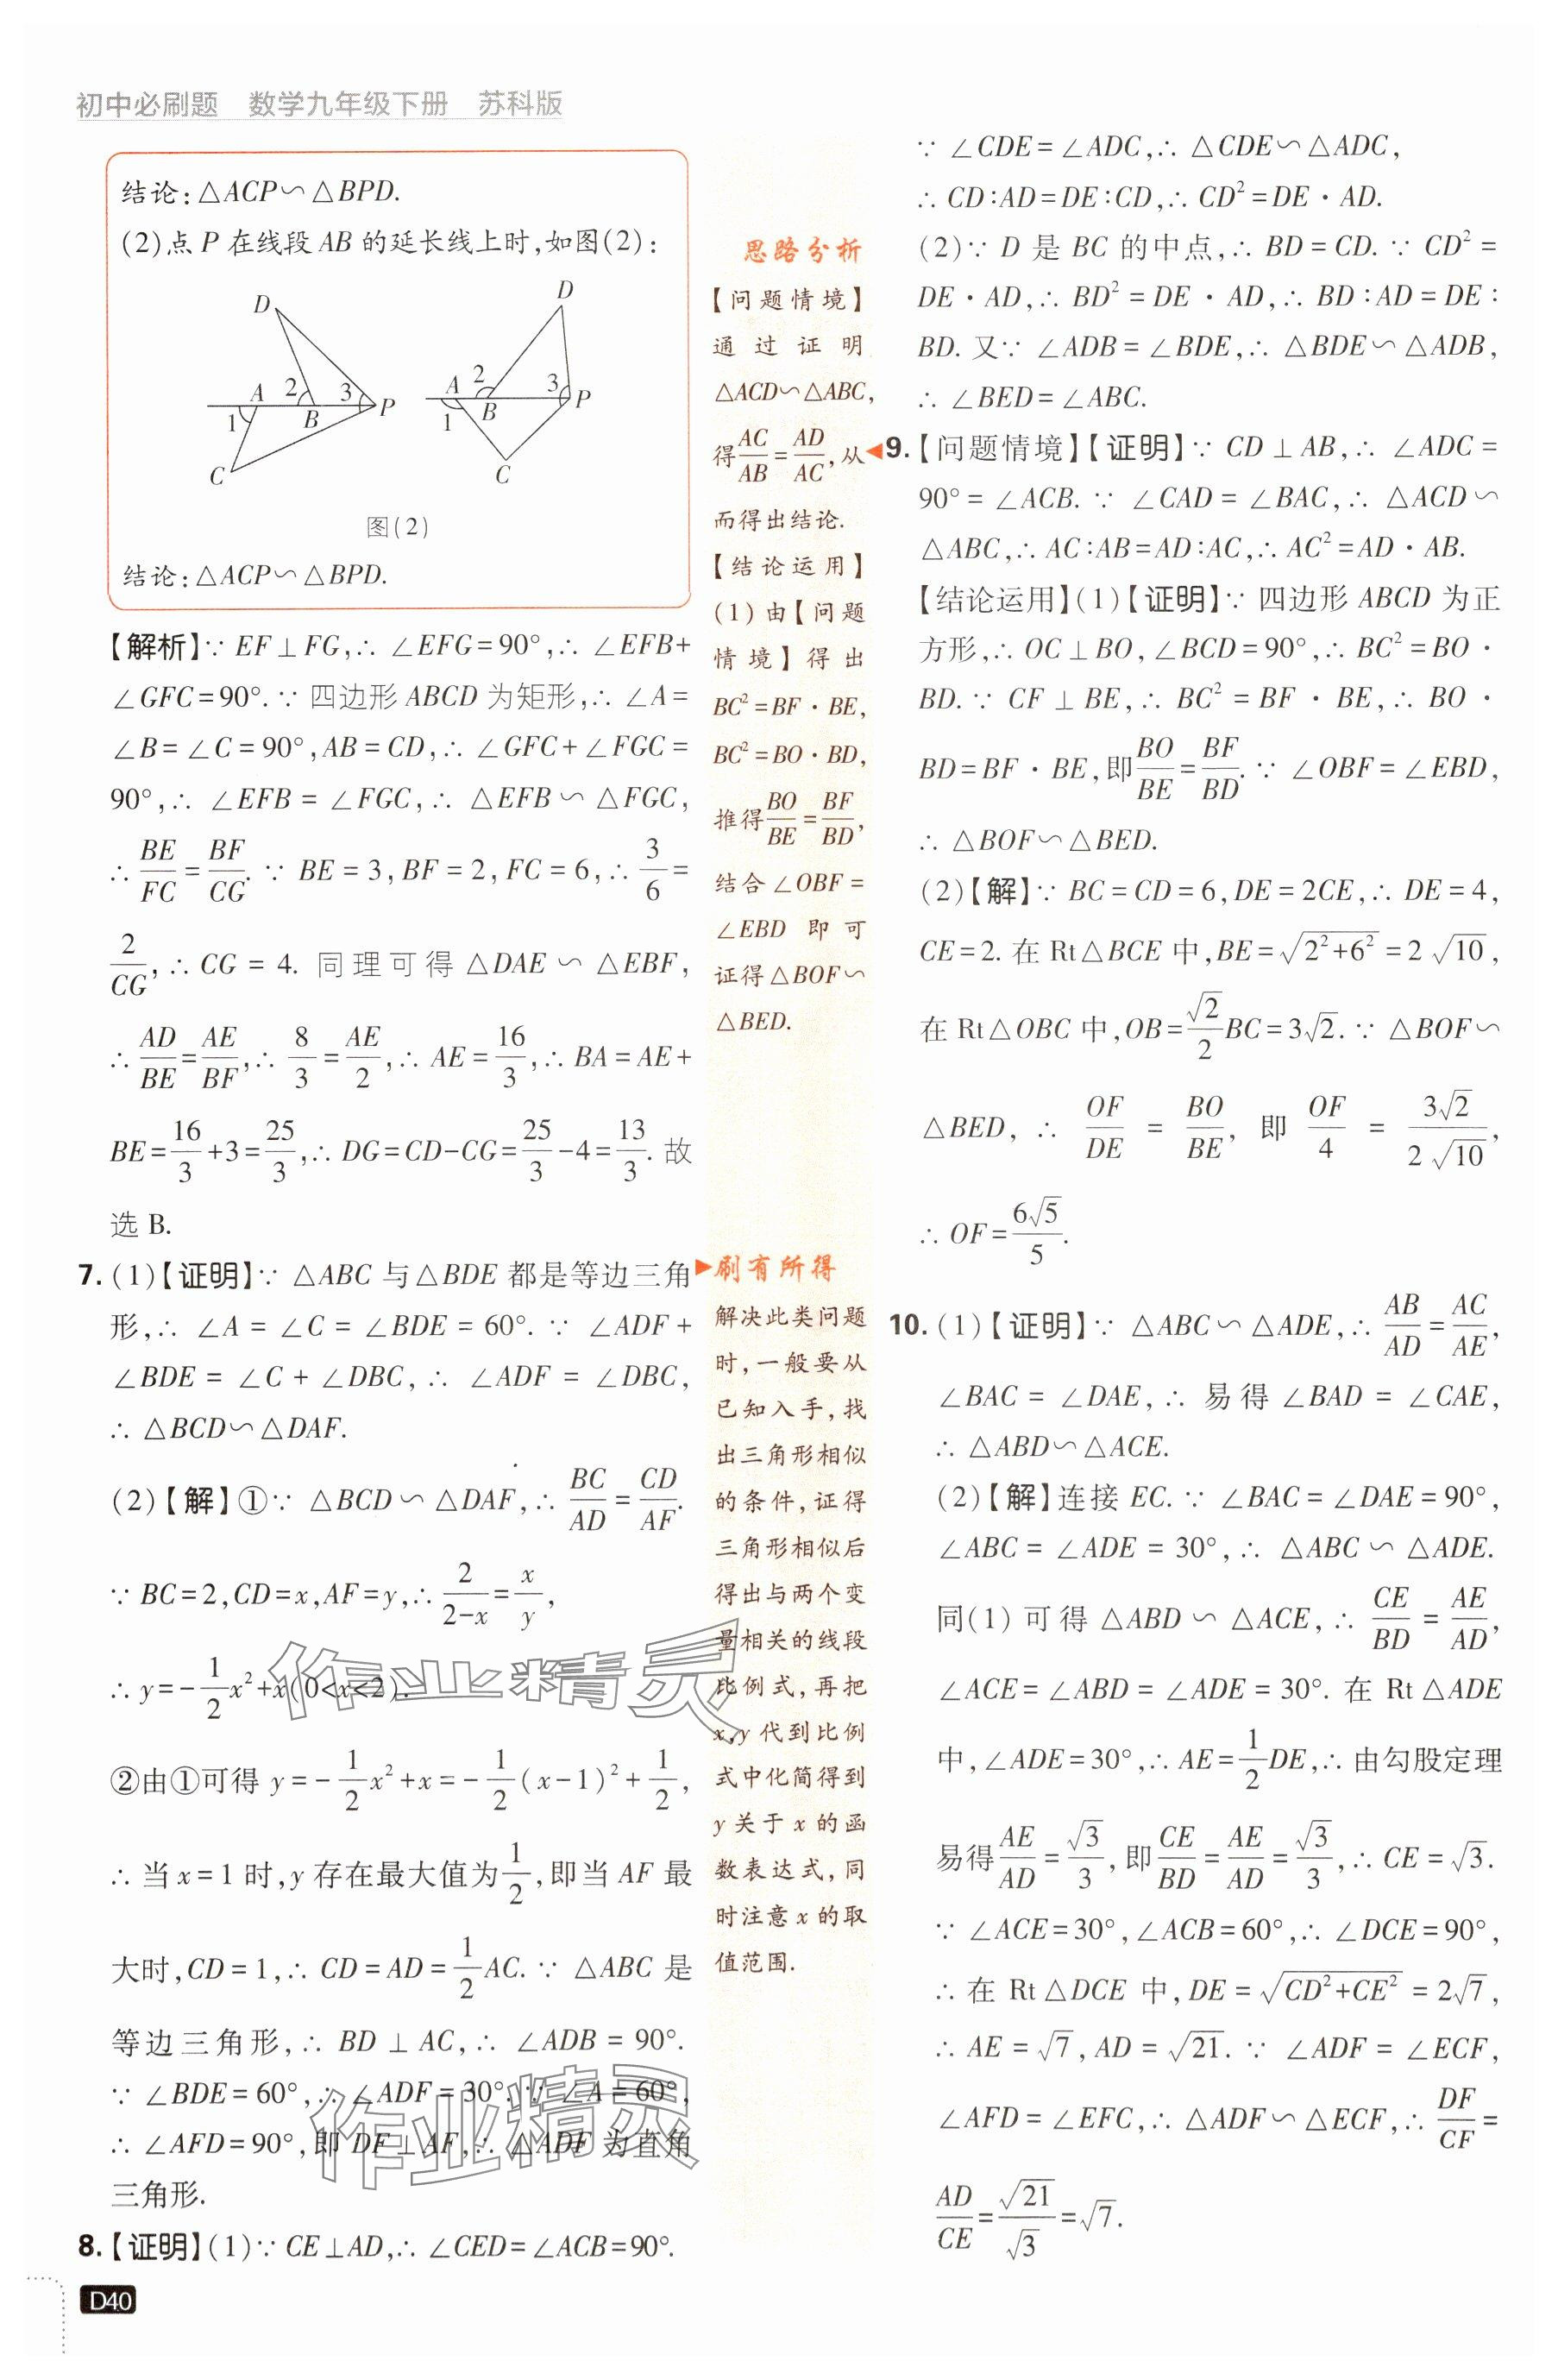 初中必刷题 数学九年级下册 苏科版
结论:△ACP∽△BPD.
(2)点 P 在线段 AB 的延长线上时,如图(2):
D
A
2
3
1
B
P
C
D
A
2
3
1
B
P
C
图(2)
结论:△ACP∽△BPD.
【解析】∵ EF⊥FG,∴ ∠EFG=90°,∴ ∠EFB+
∠GFC=90°.∵ 四边形 ABCD 为矩形,∴ ∠A=
∠B=∠C=90°,AB=CD,∴ ∠GFC+∠FGC=
90°,∴ ∠EFB=∠FGC,∴ △EFB∽△FGC,
∴ BE/FC=BF/CG.∵ BE=3,BF=2,FC=6,∴ 3/6=
2/CG,∴ CG=4. 同理可得△DAE∽△EBF,
∴ AD/BE=AE/BF,∴ 8/3=AE/2,∴ AE=16/3,∴ BA=AE+
BE=16/3+3=25/3,∴ DG=CD-CG=25/3-4=13/3. 故
选 B.
7. (1)【证明】∵ △ABC 与△BDE 都是等边三角
形,∴ ∠A=∠C=∠BDE=60°.∵ ∠ADF+
∠BDE=∠C+∠DBC,∴ ∠ADF=∠DBC,
∴ △BCD∽△DAF.
(2)【解】①∵ △BCD∽△DAF,∴ BC/AD=CD/AF.
∵ BC=2,CD=x,AF=y,∴ 2/(2-x)=x/y,
∴ y=-1/2x²+x(0<x<2).
②由①可得 y=-1/2x²+x=-1/2(x-1)²+1/2,
∴ 当 x=1 时,y 存在最大值为1/2,即当 AF 最
大时,CD=1,∴ CD=AD=1/2AC.∵ △ABC 是
等边三角形,∴ BD⊥AC,∴ ∠ADB=90°.
∵ ∠BDE=60°,∴ ∠ADF=30°.∵ ∠A=60°,
∴ ∠AFD=90°,即 DF⊥AF,∴ △ADF 为直角
三角形.
8.【证明】(1)∵ CE⊥AD,∴ ∠CED=∠ACB=90°.
D40
思路分析
【问题情境】
通过证明
△ACD∽△ABC,
得AC/AB=AD/AC,从
而得出结论.
【结论运用】
(1)由【问题
情境】得出
BC²=BF·BE,
BC²=BO·BD,
推得BO/BE=BF/BD,
结合∠OBF=
∠EBD 即可
证得△BOF∽
△BED.
刷有所得
解决此类问题
时,一般要从
已知入手,找
出三角形相似
的条件,证得
三角形相似后
得出与两个变
量相关的线段
比例式,再把
x,y 代到比例
式中化简得到
y 关于 x 的函
数表达式,同
时注意 x 的取
值范围.
∵ ∠CDE=∠ADC,∴ △CDE∽△ADC,
∴ CD∶AD=DE∶CD,∴ CD²=DE·AD.
(2)∵ D 是 BC 的中点,∴ BD=CD.∵ CD²=
DE·AD,∴ BD²=DE·AD,∴ BD∶AD=DE∶
BD. 又∵ ∠ADB=∠BDE,∴ △BDE∽△ADB,
∴ ∠BED=∠ABC.
9.【问题情境】【证明】∵ CD⊥AB,∴ ∠ADC=
90°=∠ACB.∵ ∠CAD=∠BAC,∴ △ACD∽
△ABC,∴ AC∶AB=AD∶AC,∴ AC²=AD·AB.
【结论运用】(1)【证明】∵ 四边形 ABCD 为正
方形,∴ OC⊥BO,∠BCD=90°,∴ BC²=BO·
BD.∵ CF⊥BE,∴ BC²=BF·BE,∴ BO·
BD=BF·BE,即BO/BE=BF/BD.∵ ∠OBF=∠EBD,
∴ △BOF∽△BED.
(2)【解】∵ BC=CD=6,DE=2CE,∴ DE=4,
CE=2. 在 Rt△BCE 中,BE=√(2²+6²)=2√10,
在 Rt△OBC 中,OB=√2/2BC=3√2.∵ △BOF∽
△BED,∴ OF/DE=BO/BE,即OF/4=3√2/(2√10),
∴ OF=6√5/5.
10. (1)【证明】∵ △ABC∽△ADE,∴ AB/AD=AC/AE,
∠BAC=∠DAE,∴ 易得∠BAD=∠CAE,
∴ △ABD∽△ACE.
(2)【解】连接 EC.∵ ∠BAC=∠DAE=90°,
∠ABC=∠ADE=30°,∴ △ABC∽△ADE.
同(1)可得△ABD∽△ACE,∴ CE/BD=AE/AD,
∠ACE=∠ABD=∠ADE=30°. 在 Rt△ADE
中,∠ADE=30°,∴ AE=1/2DE,∴ 由勾股定理
易得AE/AD=√3/3,即CE/BD=AE/AD=√3/3,∴ CE=√3.
∵ ∠ACE=30°,∠ACB=60°,∴ ∠DCE=90°,
∴ 在 Rt△DCE 中,DE=√(CD²+CE²)=2√7,
∴ AE=√7,AD=√21.∵ ∠ADF=∠ECF,
∠AFD=∠EFC,∴ △ADF∽△ECF,∴ DF/CF=
AD/CE=√21/√3=√7.
作业精灵
作业精灵